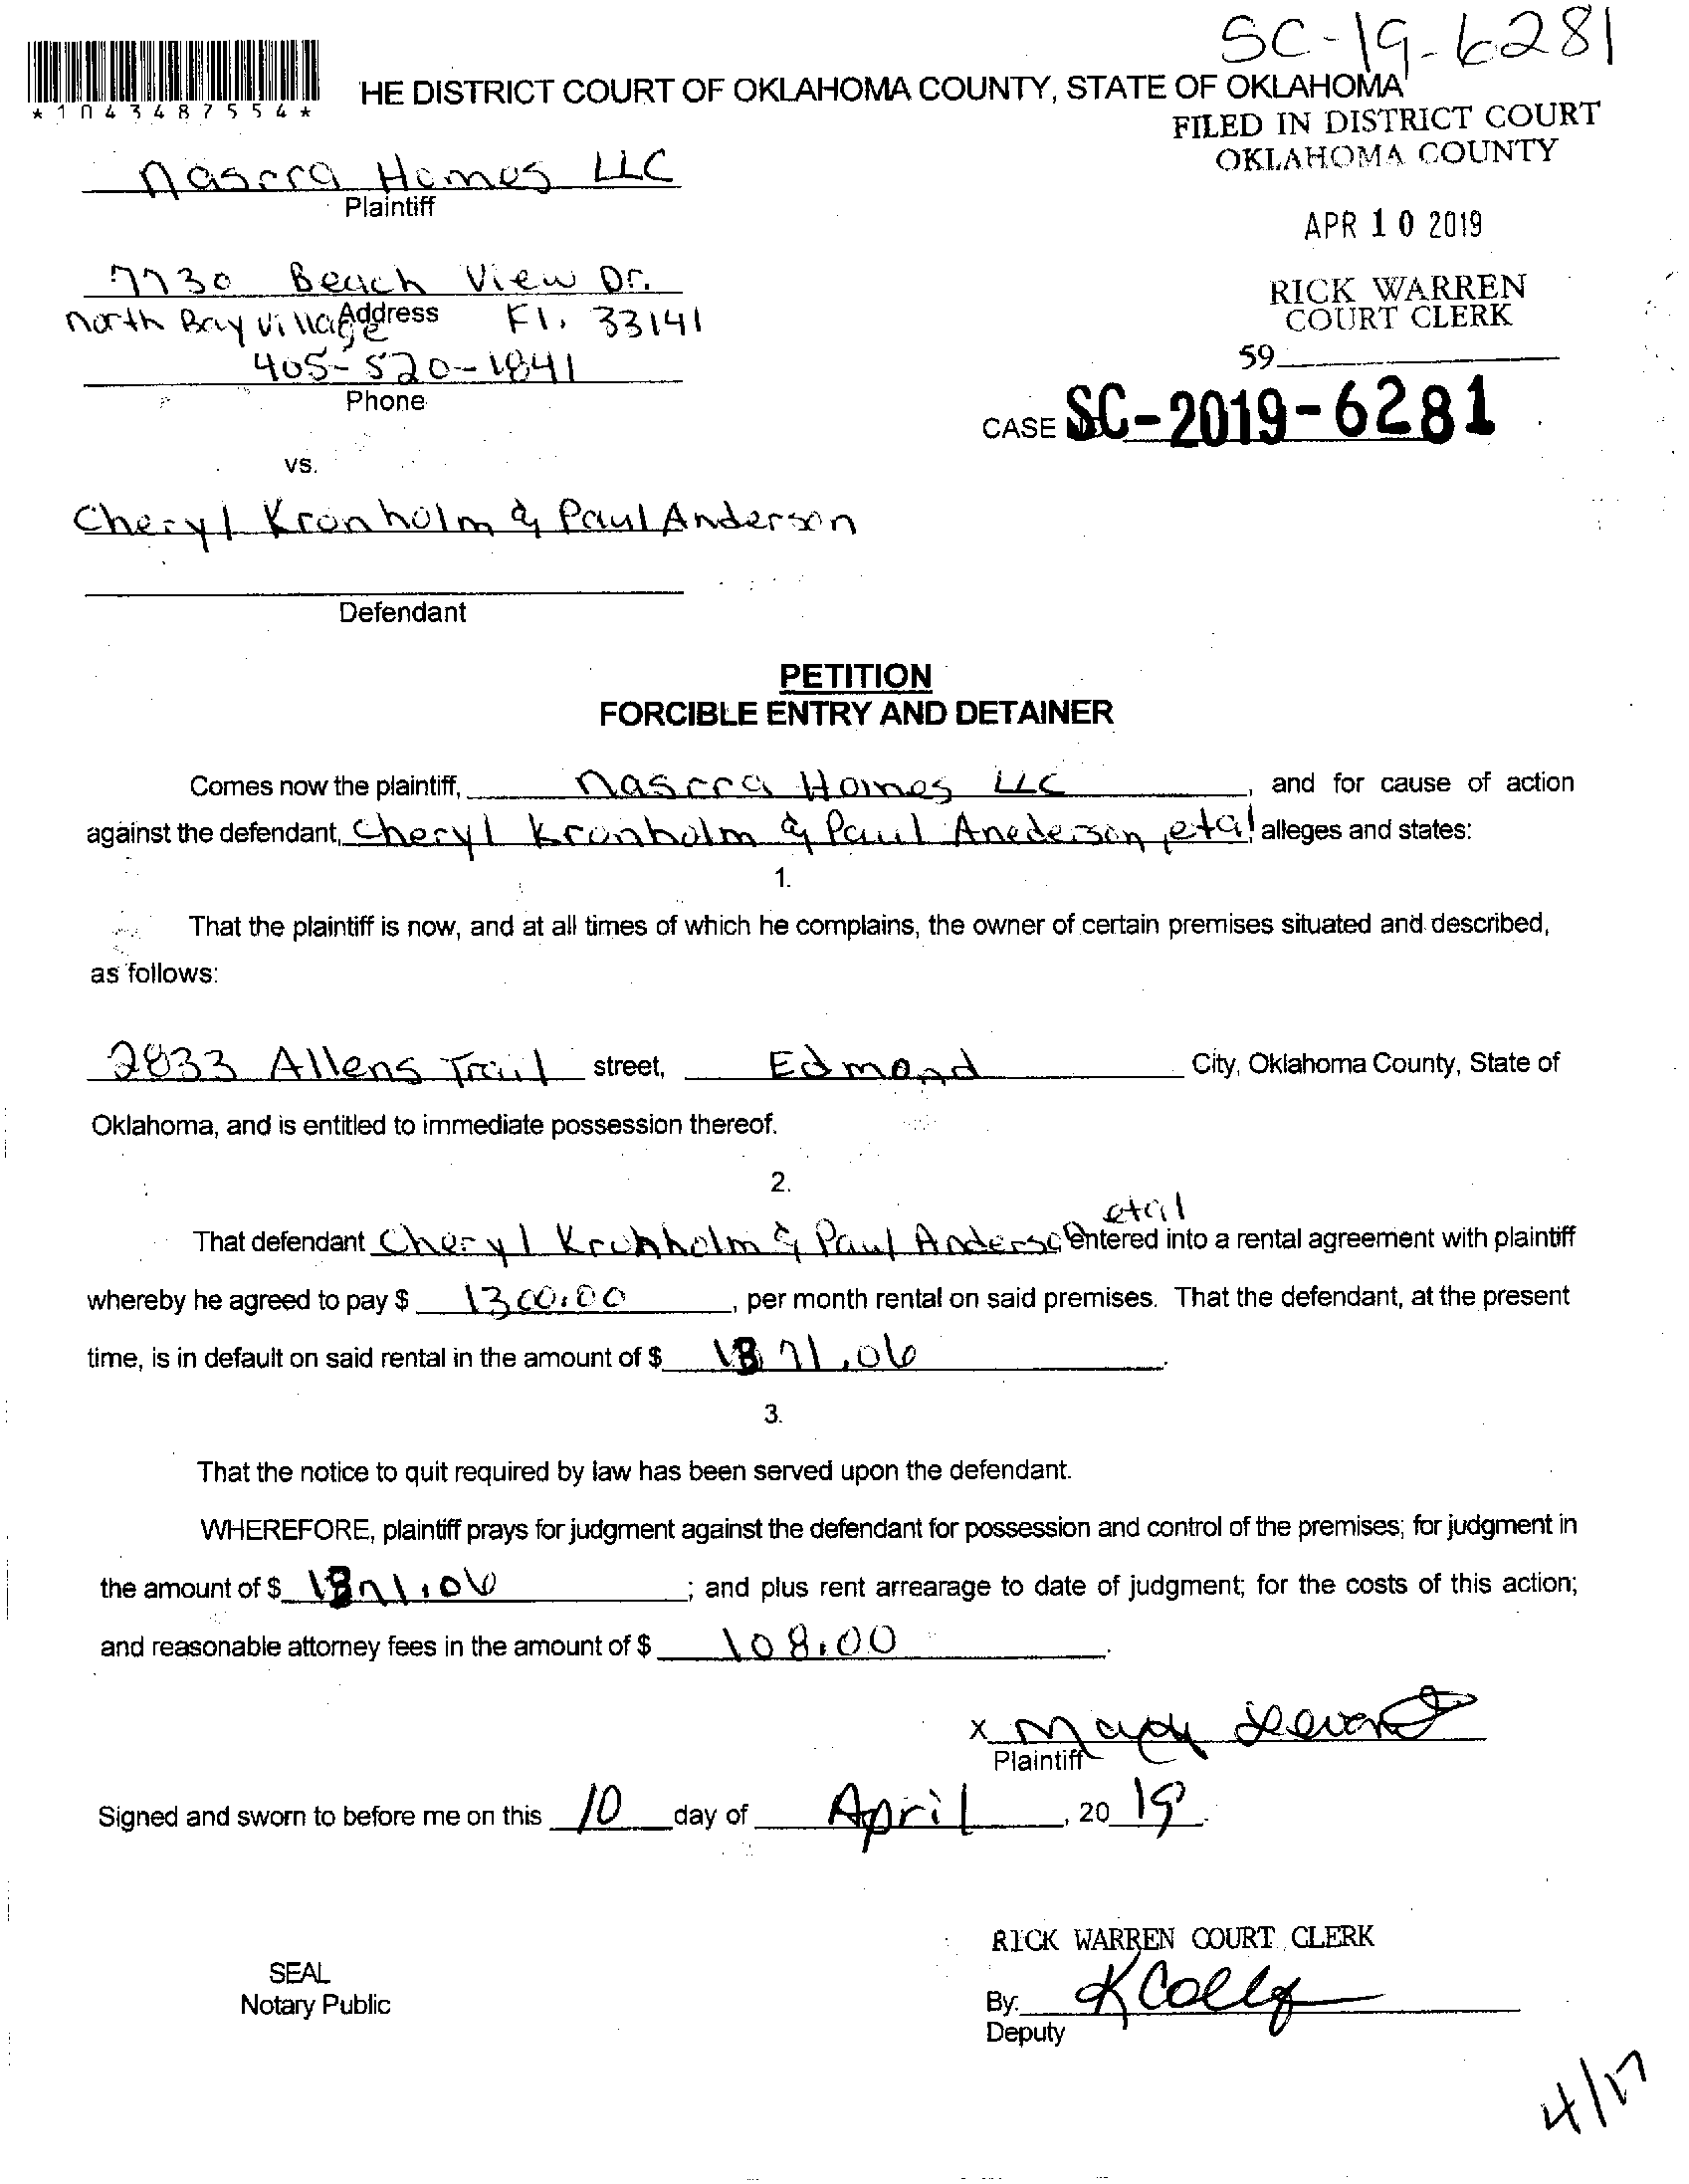 SC-19-6281
*1043487554*
HE DISTRICT COURT OF OKLAHOMA COUNTY, STATE OF OKLAHOMA
FILED IN DISTRICT COURT
OKLAHOMA COUNTY
Nasrra Homes LLC
Plaintiff
APR 10 2019
7730 Beach View Dr.
Address
North Bay Village Fl. 33141
RICK WARREN
COURT CLERK
405-520-1841
Phone
59
CASE SC-2019-6281
vs.
Cheryl Kronholm & Paul Anderson
Defendant
PETITION
FORCIBLE ENTRY AND DETAINER
Comes now the plaintiff, Nasrra Homes LLC, and for cause of action
against the defendant, Cheryl Kronholm & Paul Anederson, etal alleges and states:
1.
That the plaintiff is now, and at all times of which he complains, the owner of certain premises situated and described,
as follows:
2833 Allens Trail street, Edmond City, Oklahoma County, State of
Oklahoma, and is entitled to immediate possession thereof.
2.
etal
That defendant Cheryl Kronholm & Paul Anderso entered into a rental agreement with plaintiff
whereby he agreed to pay $ 1300.00, per month rental on said premises. That the defendant, at the present
time, is in default on said rental in the amount of $ 1871.06.
3.
That the notice to quit required by law has been served upon the defendant.
WHEREFORE, plaintiff prays for judgment against the defendant for possession and control of the premises; for judgment in
the amount of $ 1871.06; and plus rent arrearage to date of judgment; for the costs of this action;
and reasonable attorney fees in the amount of $ 108.00.
x
Plaintiff
Signed and sworn to before me on this 10 day of April, 2019.
RICK WARREN COURT CLERK
SEAL
Notary Public
By:
Deputy
4/17